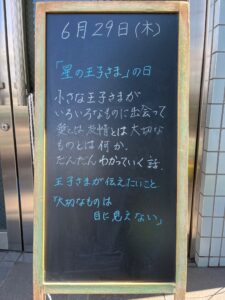 6月29日(木)
「星の王子さま」の日
小さな王子さまが
いろいろなものに出会って
愛とは 友情とは 大切な
ものとは 何か.
だんだん わかっていく話.
王子さまが伝えたいこと
「大切なものは
目に見えない」